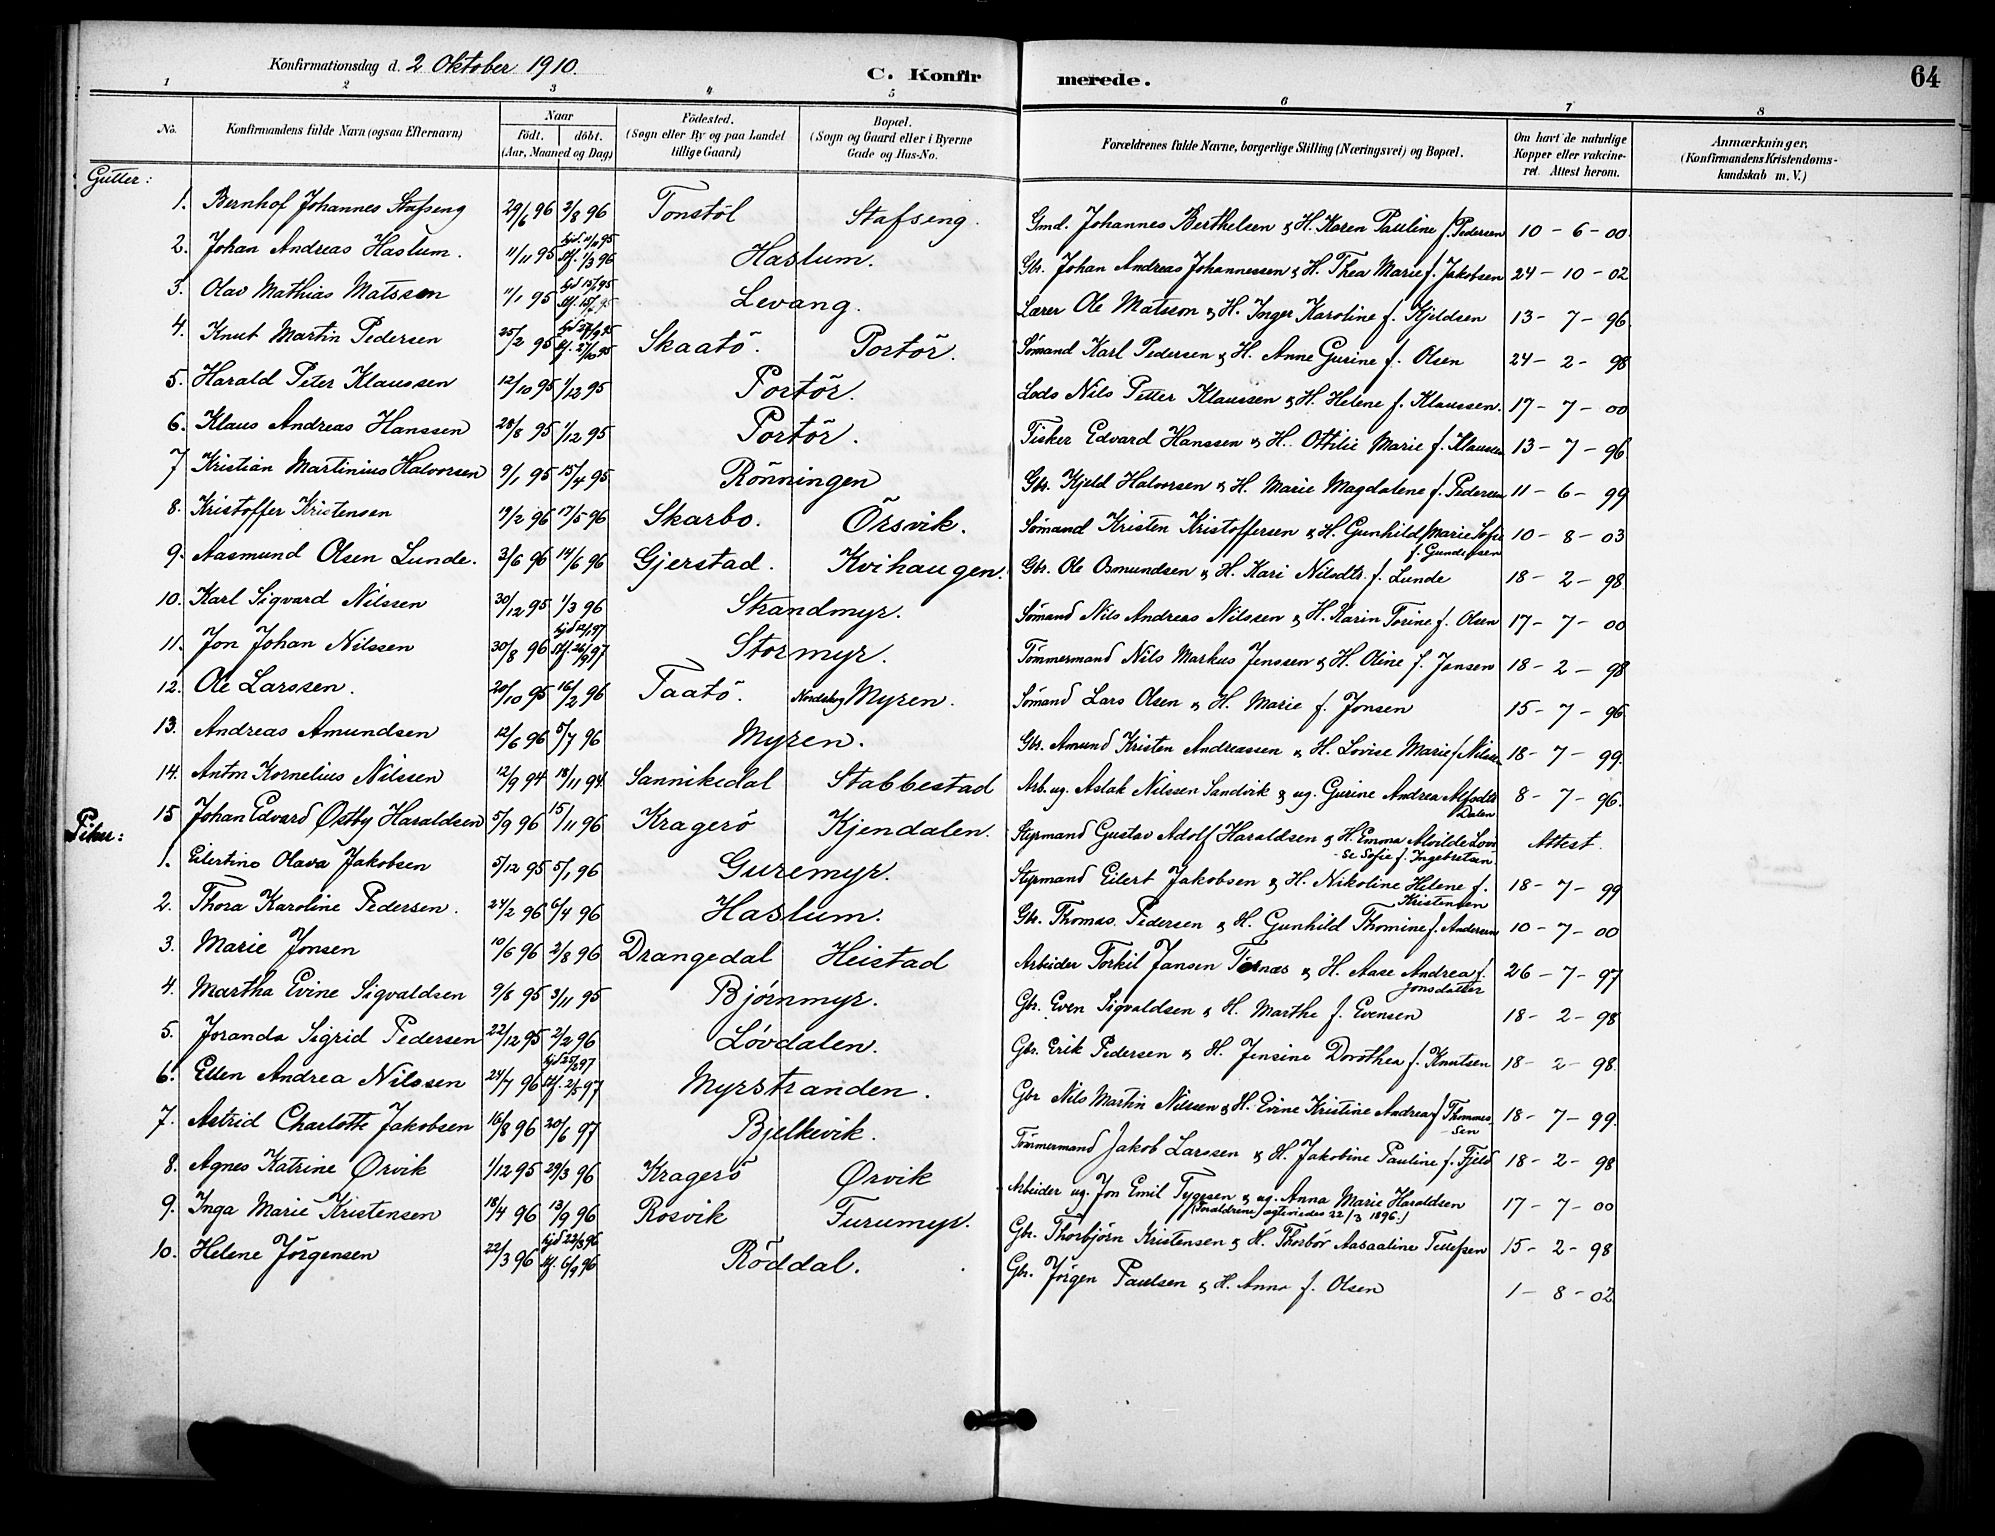 Konfirmationsdag d. 2 Oktober 1910.
C. Konfirmerede.
64
1 2 3 4 5 6 7 8
No. Konfirmandens fulde Navn (ogsaa Efternavn) Naar født. døbt. (Aar, Maaned og Dag) Födested. (Sogn eller By og paa Landet tillige Gaard) Bopæl. (Sogn og Gaard eller i Byerne Gade og Hus-No. Forældrenes fulde Navne, borgerlige Stilling (Næringsvei) og Bopæl. Om havt de naturlige Kopper eller vakcineret. Attest herom. Anmærkninger. (Konfirmandens Kristendomskundskab m. V.)
Gutter:
1. Bernhof Johannes Stafseng 29/6 96 2/8 96 Tonstöl Stafseng. Gmd. Johannes Berthelsen & H. Karen Pauline f. Pedersen 10-6-00
2. Johan Andreas Haslum. 11/11 95 hjd. 11/11 95 Stf. 1/3 96 Haslum. Gbr. Johan Andreas Johannessen & H. Thea Marie f. Jakobsen 24-10-02
3. Olav Mathias Matsson 11/1 95 Levang. Lærer Ole Matsson & H. Inger Karoline f. Kjeldsen 13-7-96
4. Knut Martin Pedersen 25/2 95 Stf. 27/10 95 Skaatö. Portör. Sömand Karl Pedersen & H. Anne Gurine f. Olsen 24-2-98
5. Harald Peter Klaussen 12/10 95 1/12 95 Portör. Lods Nils Petter Klaussen & H. Helene f. Klaussen. 17-7-00
6. Klaus Andreas Hanssen 28/8 95 1/12 95 Portör. Fisker Edvard Hanssen & H. Ottilie Marie f. Klaussen 13-7-96
7 Kristian Martinius Halvorsen 9/1 95 15/4 95 Rönningen Gbr. Kjeld Halvorsen & H. Marie Magdalene f. Pedersen 11-6-99
8. Kristoffer Kristensen 19/2 96 17/5 96 Skarbo. Örsvik. Sömand Kristen Kristoffersen & H. Gunhild Marie Sofie f. Gundersen 10-8-03
9. Aasmund Olsen Lunde. 3/6 96 14/6 96 Gjerstad. Kvihaugen. Gbr. Ole Osmundsen & H. Kari Nilsdtr. f. Lunde 18-2-98
10. Karl Sigvard Nilssen 30/12 95 1/3 96 Strandmyr. Sömand Nils Andreas Nilssen & H. Karin Torine f. Olsen 17-7-00
11. Jon Johan Nilssen 30/8 96 Stormyr. Tömmermand Nils Markus Jenssen & H. Oline f. Jansen 18-2-98
12. Ole Larssen. 20/10 95 16/2 96 Taatö. Nordskog Myren. Sömand Lars Olsen & H. Marie f. Jonsen 15-7-96
13. Andreas Amundsen 12/6 96 5/7 96 Myren. Gbr. Amund Kristen Andreassen & H. Lovise Marie f. Nilssen 18-7-99
14. Anton Kornelius Nilssen 12/9 94 18/11 94 Sannikedal Stabbestad Arb. ug. Aslak Nilssen Sandvik & ug. Gurine Andrea Alfsdtr. Dalen 8-7-96.
15 Johan Edvard Østby Haraldsen 5/9 96 15/11 96 Kragerö Kjendalen. Styrmand Gustav Adolf Haraldsen & H. Emma Alvilde Lovise Sofie f. Ingebretsen Attest.
Piker:
1. Eilertine Olava Jakobsen 5/12 95 5/1 96 Guremyr. Styrmand Eilert Jakobsen & H. Nikoline Helene f. Kristensen 18-7-99
2. Thora Karoline Pedersen. 24/2 96 6/4 96 Haslum. Gbr. Thomas Pedersen & H. Gunhild Thomine f. Andersen 10-7-00
3. Marie Jonsen 10/6 96 2/8 96 Drangedal Heistad Arbeider Torkil Jansen Tornæs & H. Aase Andrea f. Jonsdatter 26-7-97
4. Martha Evine Sigvaldsen 9/8 95 3/11 95 Bjørnmyr. Gbr. Even Sigvaldsen & H. Marthe f. Evensen 18-2-98
5. Joranda Sigrid Pedersen 22/12 95 2/2 96 Løvdalen. Gbr. Erik Pedersen & H. Jensine Dorothea f. Knutsen 18-2-98.
6. Ellen Andrea Nilssen 24/7 96 Stf. 2/5 97 Myrstranden. Gbr Nils Martin Nilssen & H. Evine Kristine Andrea f. Thommessen 18-7-99.
7. Astrid Charlotte Jakobsen 16/8 96 20/6 97 Bjelkevik. Tömmermand Jakob Larssen & H. Jakobine Pauline f. Fjeld 18-2-98
8. Agnes Katrine Ørvik 1/12 95 29/3 96 Kragerö Ørvik Arbeider ug. Jon Emil Tygesen & ug. Anna Marie Haraldsen (Foraldrene ægteviedes 22/3 1896.) 17-7-00
9. Inga Marie Kristensen 18/4 96 13/9 96 Rosvik Furumyr. Gbr. Thorbjörn Kristensen & H. Thorbör Aasaaline Tellefsen 15-2-98
10. Helene Jörgensen 22/3 96 hjd 22/3 96 Stf. 6/9 96 Röddal. Gbr. Jörgen Paulsen & H. Anna f. Olsen 1-8-02